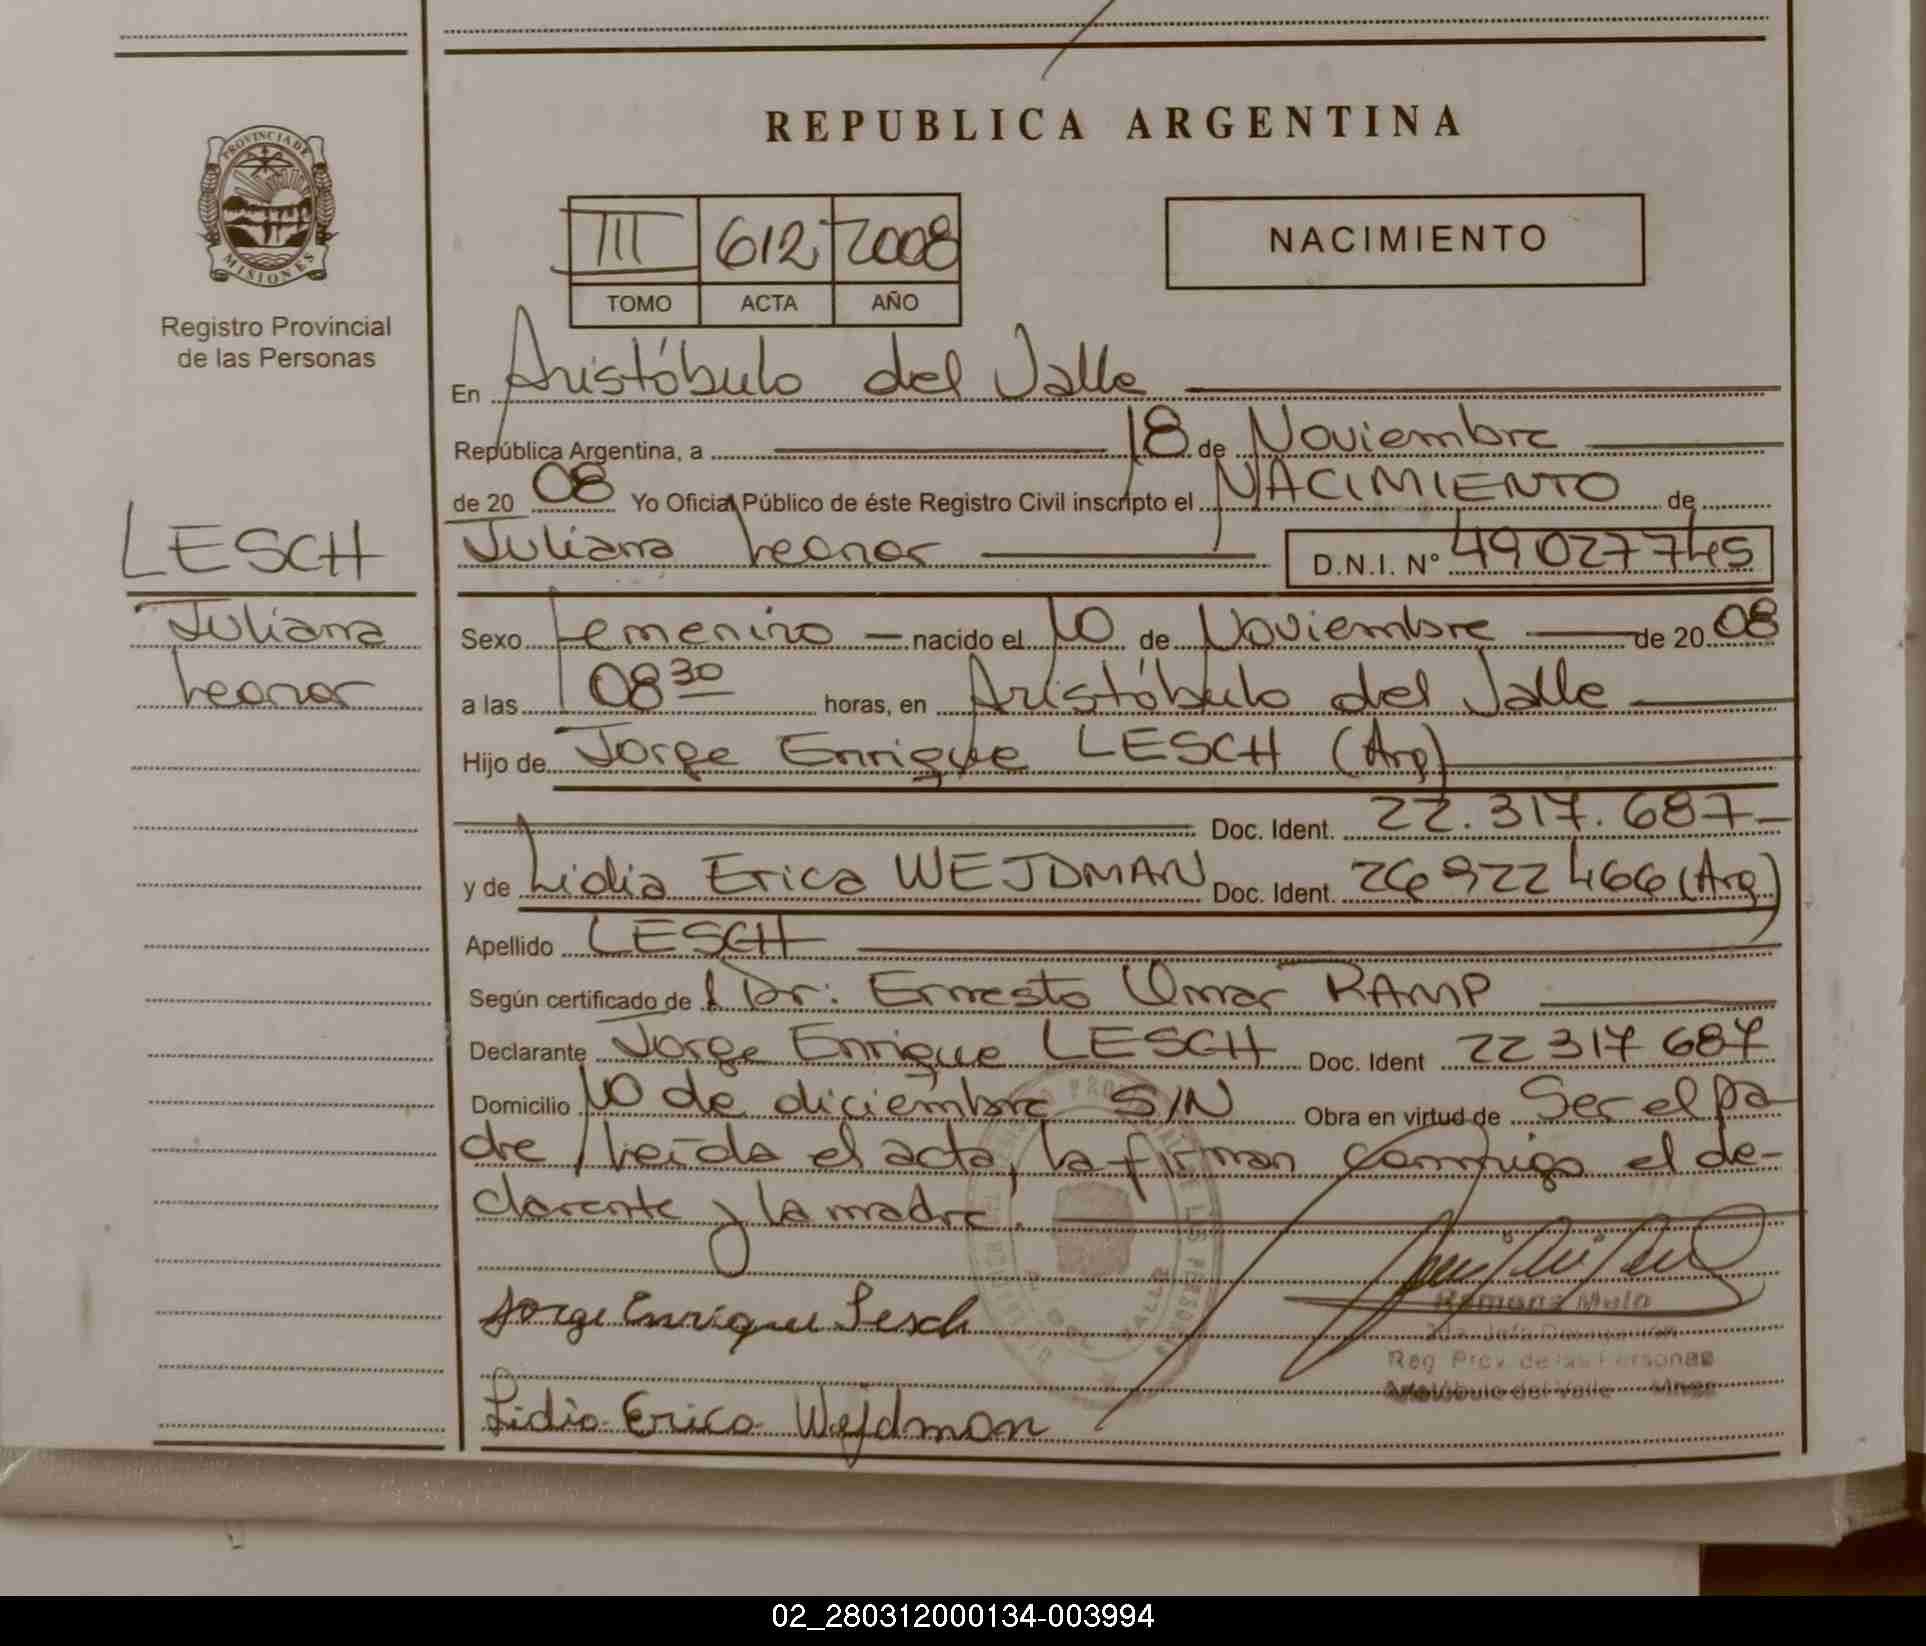 REPUBLICA ARGENTINA
PROVINCIA DE
MISIONES
Registro Provincial
de las Personas
III 612 2008
TOMO ACTA AÑO
NACIMIENTO
LESCH
Juliana
Leonor
En Aristóbulo del Valle
República Argentina, a 18 de Noviembre
de 20 08 Yo Oficial Público de éste Registro Civil inscripto el NACIMIENTO de
Juliana Leonor D.N.I. Nº 49027745
Sexo Femenino nacido el 10 de Noviembre de 20 08
a las 08 30 horas, en Aristóbulo del Valle
Hijo de Jorge Enrique LESCH (Arg)
Doc. Ident. 22.317.687
y de Lidia Erica WEJDMAN Doc. Ident. 26922466 (Arg)
Apellido LESCH
Según certificado de Dr: Ernesto Omar RAMP
Declarante Jorge Enrique LESCH Doc. Ident 22317687
Domicilio 10 de diciembre S/N Obra en virtud de Ser el pa
dre, Leída el acta, la firman conmigo el de-
clarante y la madre.
Jorge Enrique Lesch
Lidia Erica Wejdman
Reg. Prov. de las Personas
Aristóbulo del Valle Mnes
02_280312000134-003994